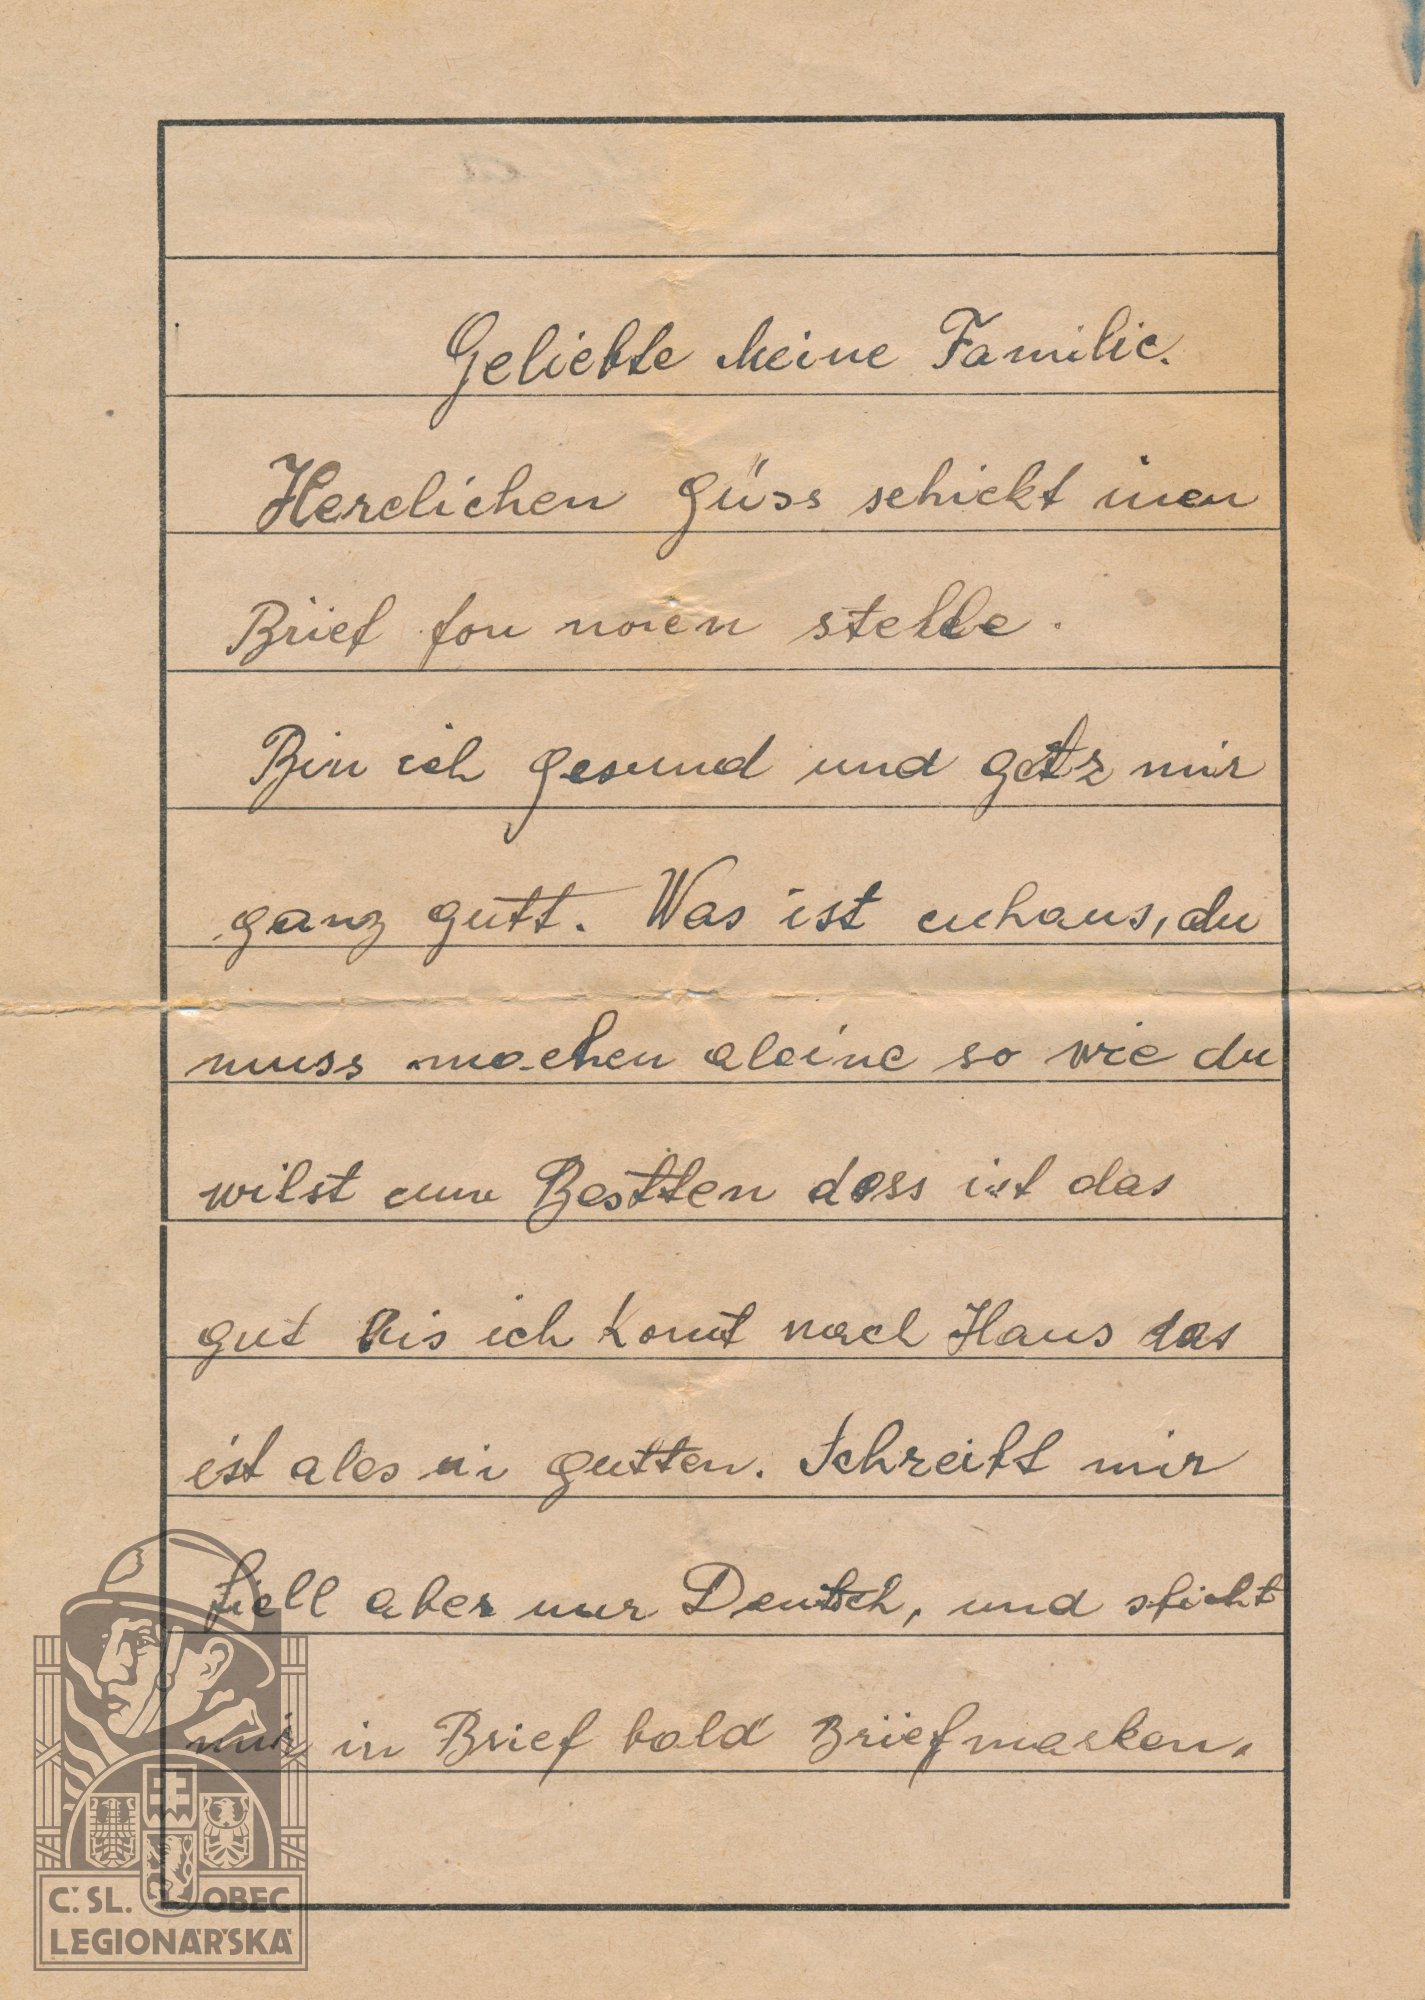 Geliebte Meine Familie.
Herclichen Güss schickt inen
Brief fon noien stehle.
Bin ich gesund und getz mir
ganz gutt. Was ist cuhaus, du
muss machen aleine so wie du
wilst cum Bestten dass ist das
gut bis ich Komt nach Haus das
ist ales in gutten. Schreibt mir
fiell aber nur Deutsch, und schicht
mir in Brief bald Briefmarken.
Č.SL. OBEC
LEGIONÁŘSKÁ